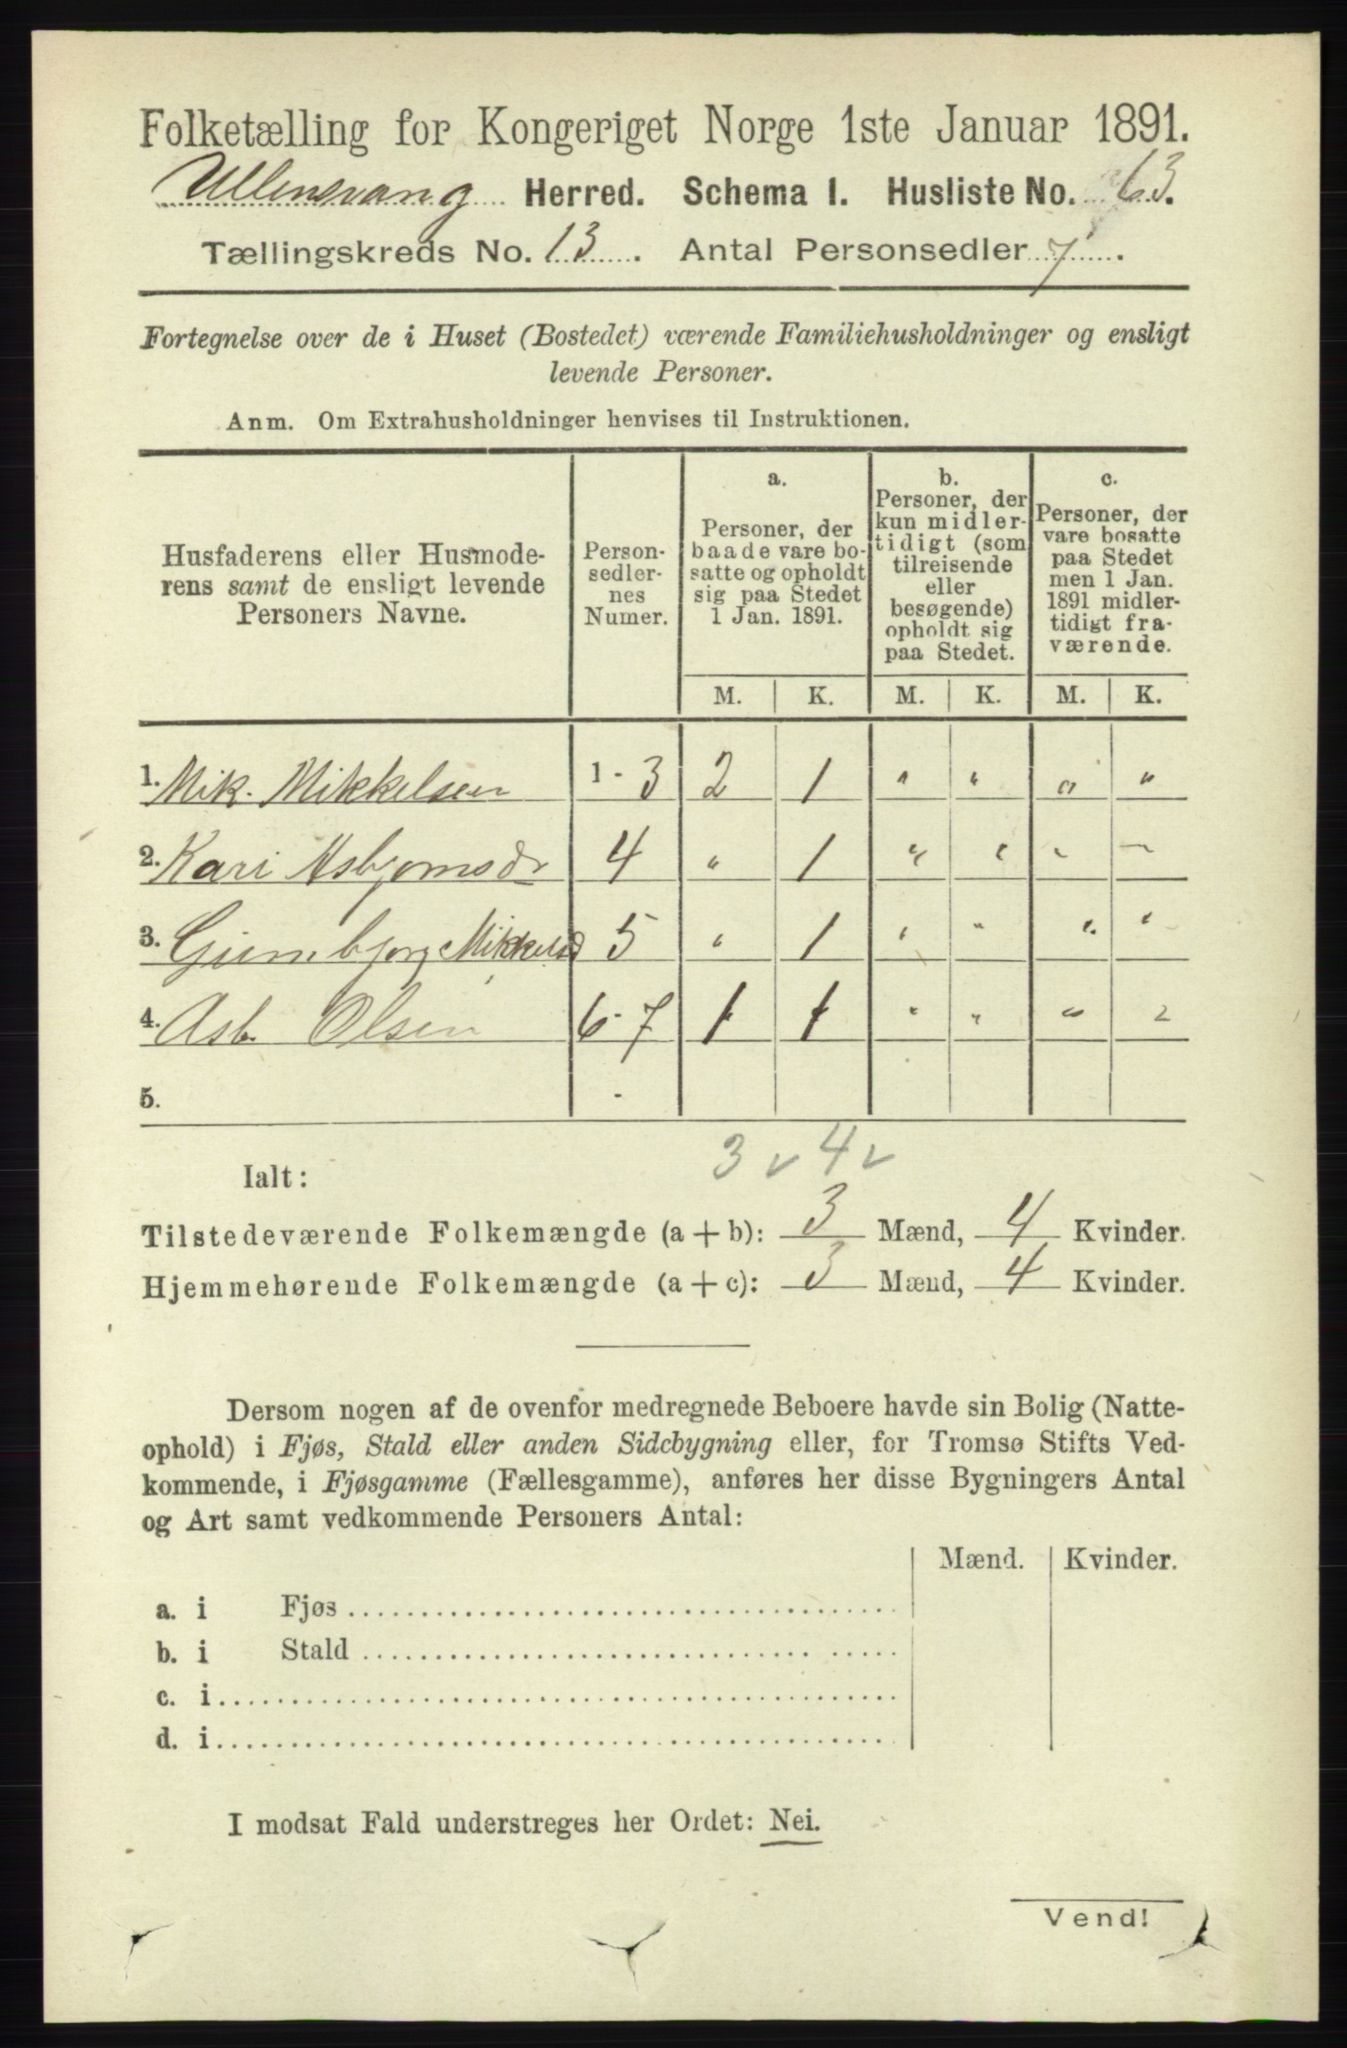 Folketælling for Kongeriget Norge 1ste Januar 1891.
Ullensvang Herred. Schema I. Husliste No. 63.
Tællingskreds No. 13. Antal Personsedler 7.
Fortegnelse over de i Huset (Bostedet) værende Familiehusholdninger og ensligt
levende Personer.
Anm. Om Extrahusholdninger henvises til Instruktionen.
Husfaderens eller Husmode-
rens samt de ensligt levende
Personers Navne.
Person-
sedler-
nes
Numer.
a.
Personer, der
baade vare bo-
satte og opholdt
sig paa Stedet
1 Jan. 1891.
b.
Personer, der
kun midler-
tidigt (som
tilreisende
eller
besøgende)
opholdt sig
paa Stedet.
c.
Personer, der
vare bosatte
paa Stedet
men 1 Jan.
1891 midler-
tidigt fra-
værende.
M. K. M. K. M. K.
1. Mik. Mikkelsen 1 - 3 2 1 " " " "
2. Kari Asbjørnsdr 4 " 1 " " " "
3. Gunnbjørg Mikkelsd 5 " 1 " " " "
4. Asb. Olsen 6 - 7 1 1 " " " "
5. -
3 ✓ 4 ✓
Ialt:
Tilstedeværende Folkemængde (a + b): 3 Mænd, 4 Kvinder.
Hjemmehørende Folkemængde (a + c): 3 Mænd, 4 Kvinder.
Dersom nogen af de ovenfor medregnede Beboere havde sin Bolig (Natte-
ophold) i Fjøs, Stald eller anden Sidebygning eller, for Tromsø Stifts Ved-
kommende, i Fjøsgamme (Fællesgamme), anføres her disse Bygningers Antal
og Art samt vedkommende Personers Antal:
Mænd. Kvinder.
a. i Fjøs
b. i Stald
c. i
d. i
I modsat Fald understreges her Ordet: Nei.
Vend!